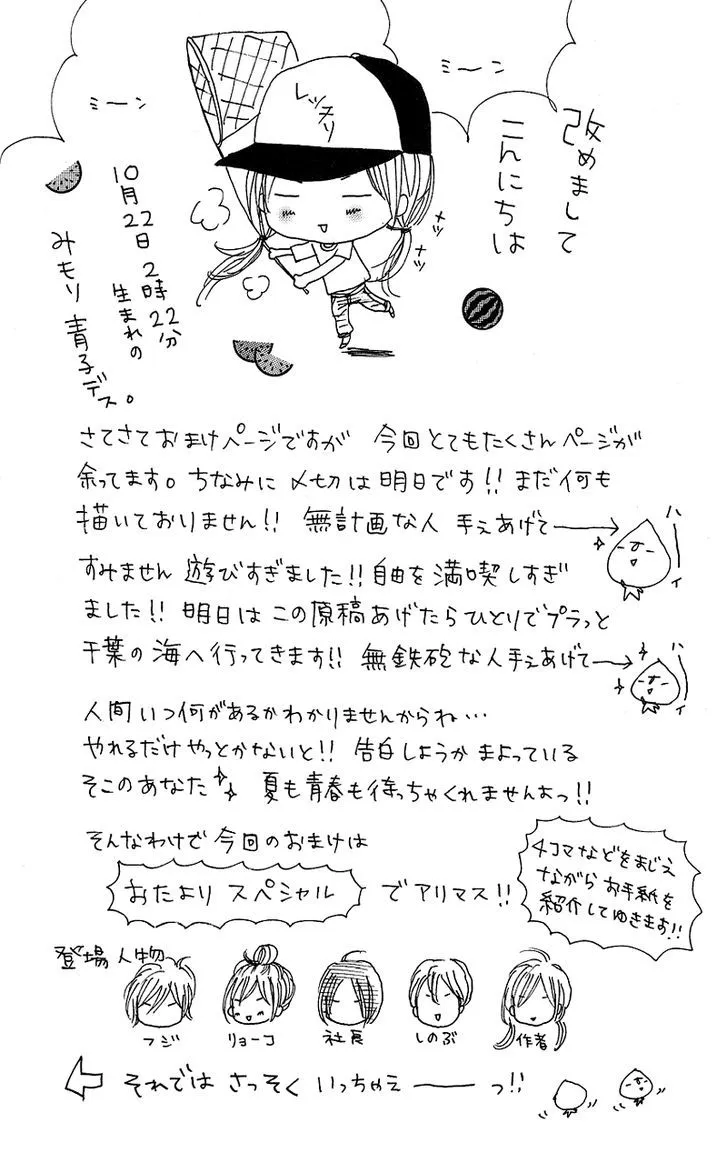 ミーン
ミーン
レッスリ
改めまして
こんにちは
ナツ
ナツ
10月22日 2時22分
生まれの
みもり青子デス。
さてさておまけページですが 今回とてもたくさんページが
余ってます。ちなみに〆切は明日です!! まだ何も
描いておりません!! 無計画な人 手ぇあげて
ハーイ
すみません 遊びすぎました!! 自由を満喫しすぎ
ました!! 明日はこの原稿あげたらひとりでプラっと
千葉の海へ行ってきます!! 無鉄砲な人手ぇあげて
ハーイ
人間いつ何があるかわかりませんからね…
やれるだけやっとかないと!! 告白しようかまよっている
そこのあなた 夏も青春も待っちゃくれませんよっ!!
そんなわけで今回のおまけは
おたよりスペシャル でアリマス!!
4コマなどをまじえ
ながらお手紙を
紹介してゆきます!!
登場人物
フジ リョーコ 社長 しのぶ 作者
それでは さっそく いっちゃえーーっ!!